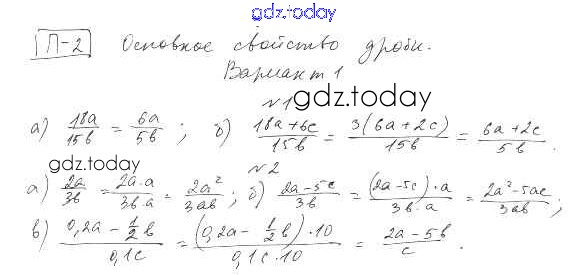 gdz.today
П-2 Основное свойство дроби.
Вариант 1
№1
gdz.today
а) 18a/15b = 6a/5b ; б) (18a+6c)/15b = 3(6a+2c)/15b = (6a+2c)/5b .
gdz.today
№2
а) 2a/3b = 2a·a/3b·a = 2a²/3ab ; б) (2a-5c)/3b = (2a-5c)·a/3b·a = (2a²-5ac)/3ab ;
в) (0,2a - 1/2 b)/0,1c = (0,2a - 1/2 b)·10/0,1c·10 = (2a-5b)/c .